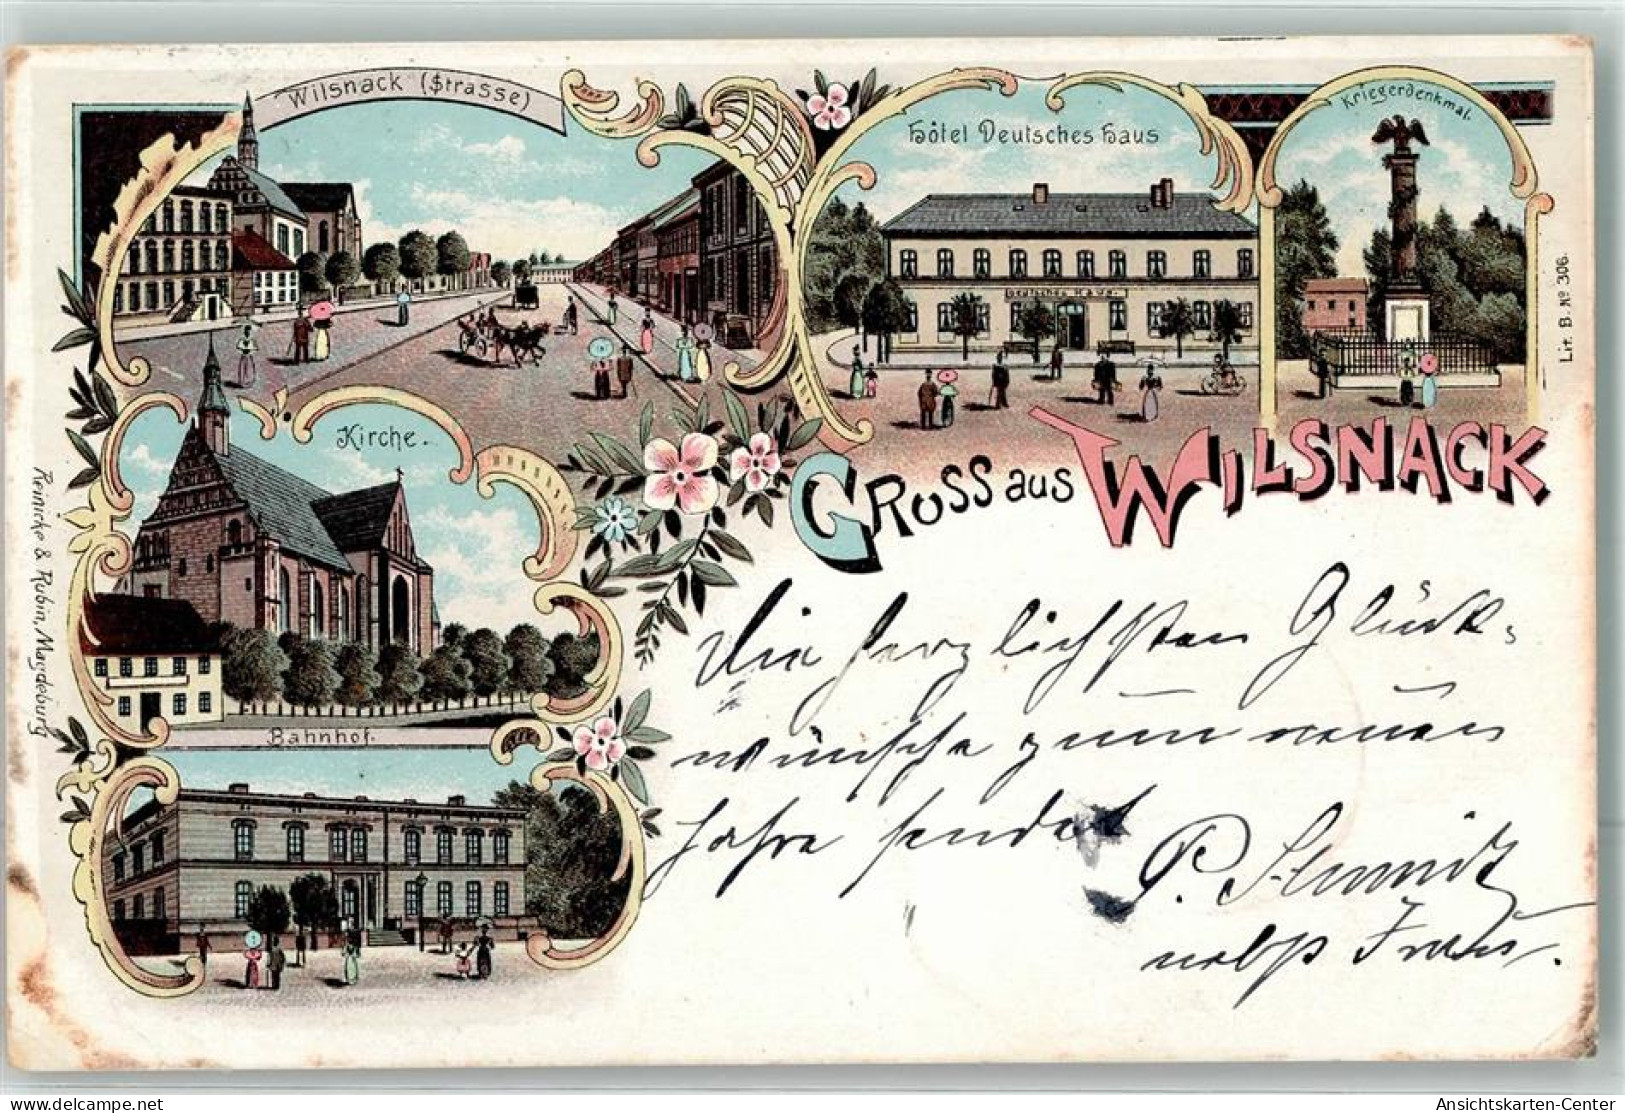 Wilsnack (Strasse)
Hôtel Deutsches Haus
Kriegerdenkmal.
Deutsches Haus
Lit. B. No 306.
Kirche.
Gruss aus Wilsnack
Reinicke & Rubin, Magdeburg
Bahnhof.
Die herzlichsten Glück-
wünsche zum neuen
Jahre sendet
P. Schmidt
nebst Frau.
Ansichtskarten-Center